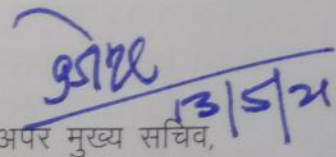 13/5/21
अपर मुख्य सचिव,